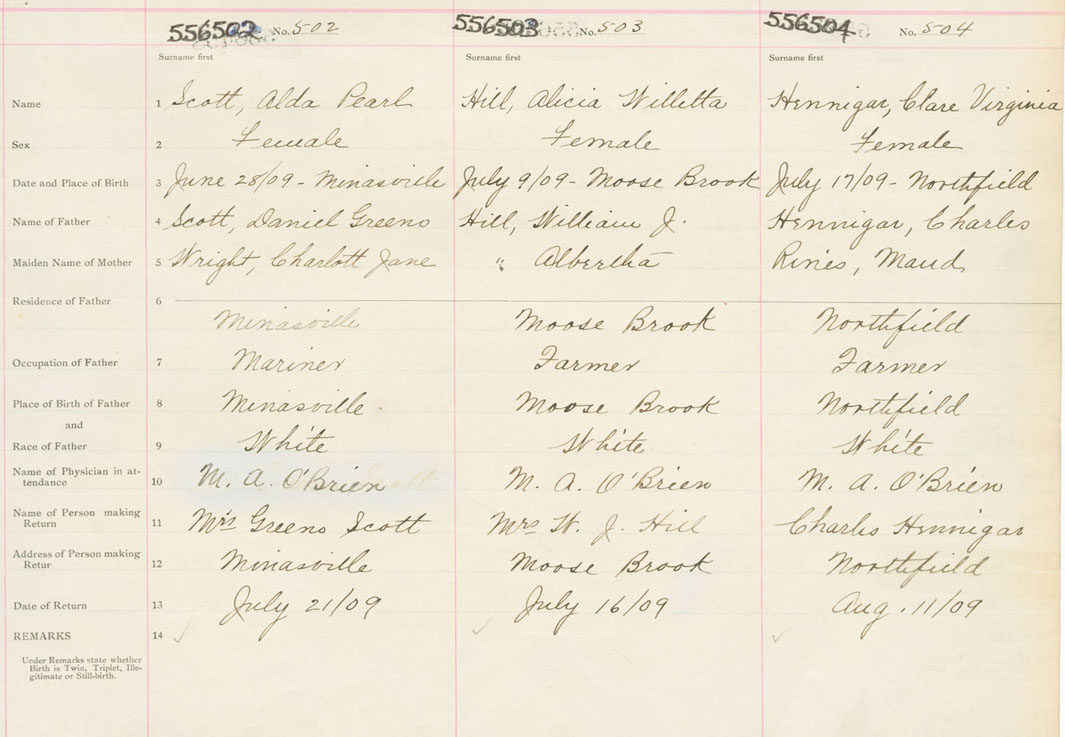 556502 No. 502 556503 No. 503 556504 No. 504
Surname first Surname first Surname first
Name 1 Scott, Alda Pearl Hill, Alicia Willetta Hennigar, Clare Virginia
Sex 2 Female Female Female
Date and Place of Birth 3 June 28/09 - Minasville July 9/09 - Moose Brook July 17/09 - Northfield
Name of Father 4 Scott, Daniel Greeno Hill, William J. Hennigar, Charles
Maiden Name of Mother 5 Wright, Charlott Jane " Albertha Rines, Maud
Residence of Father 6
Minasville Moose Brook Northfield
Occupation of Father 7 Mariner Farmer Farmer
Place of Birth of Father 8 Minasville Moose Brook Northfield
and
Race of Father 9 White White White
Name of Physician in at-
tendance 10 M. A. O'Brien M. A. O'Brien M. A. O'Brien
Name of Person making
Return 11 Mrs Greeno Scott Mrs W. J. Hill Charles Hennigar
Address of Person making
Retur 12 Minasville Moose Brook Northfield
Date of Return 13 July 21/09 July 16/09 Aug. 11/09
REMARKS 14
Under Remarks state whether
Birth is Twin, Triplet, Ille-
gitimate or Still-birth.